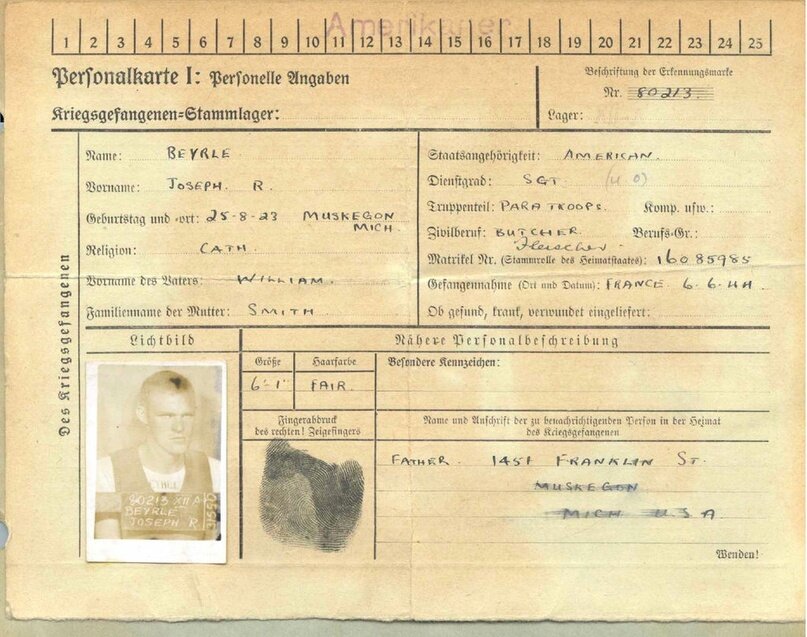 Amerikaner
1 2 3 4 5 6 7 8 9 10 11 12 13 14 15 16 17 18 19 20 21 22 23 24 25
Personalkarte I: Personelle Angaben
Kriegsgefangenen=Stammlager:
Beschriftung der Erkennungsmarke
Nr. 80213
Lager:
Des Kriegsgefangenen
Name: BEYRLE
Vorname: JOSEPH. R.
Geburtstag und =ort: 25-8-23 MUSKEGON
MICH.
Religion: CATH.
Vorname des Vaters: WILLIAM.
Familienname der Mutter: SMITH
Staatsangehörigkeit: AMERICAN.
Dienstgrad: SGT. (U.O)
Truppenteil: PARATROOPS. Komp. usw.:
Zivilberuf: BUTCHER. Berufs-Gr.:
Fleischer
Matrikel Nr. (Stammrolle des Heimatstaates): 16085985
Gefangennahme (Ort und Datum): FRANCE. 6-6-44
Ob gesund, krank, verwundet eingeliefert:
Lichtbild
Nähere Personalbeschreibung
Größe
Haarfarbe
Besondere Kennzeichen:
6'-1"
FAIR.
Fingerabdruck
des rechten! Zeigefingers
Name und Anschrift der zu benachrichtigenden Person in der Heimat
des Kriegsgefangenen
FATHER. 1451 FRANKLIN ST.
MUSKEGON
MICH U.S.A.
80213 XII A
BEYRLE
JOSEPH R.
Wenden!